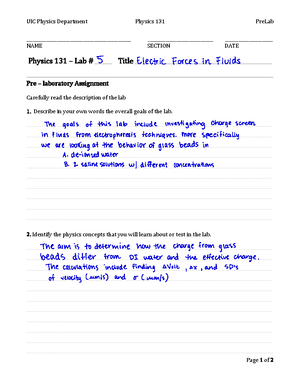 UIC Physics Department Physics 131 PreLab
NAME SECTION DATE
Physics 131 – Lab # 5 Title Electric Forces in Fluids
Pre – laboratory Assignment
Carefully read the description of the lab
1. Describe in your own words the overall goals of the lab.
The goals of this lab include investigating charge screen
in fluids from electrophoresis techniques. More specifically
we are looking at the behavior of glass beads in
A. de-ionised water
B. 2 saline solutions w/ different concentrations
2. Identify the physics concepts that you will learn about or test in the lab.
The aim is to determine how the charge from glass
beads differ from DI water and the effective charge.
The calculations include finding ΔVolt, Δx, and SD's
of velocity (mm/s) and σ (mm/s)
Page 1 of 2